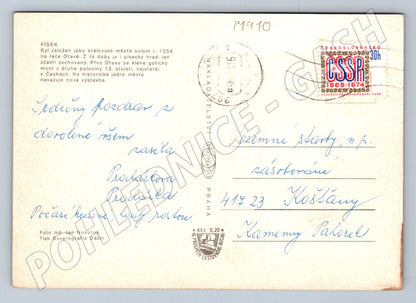 P1910
PÍSEK
Byl založen jako královské město kolem r. 1254
na řece Otavě. Z té doby je i písecký hrad, jen
zčásti zachovaný. Přes Otavu se klene gotický
most z druhé poloviny 13. století, nejstarší
v Čechách. Na historické jádro města
navazuje nová výstavba.
Srdečný pozdrav z
dovolené všem
zasílá
Procházka
Počasí
Foto ing. Jan Novotný
Tisk Severografia Děčín
NAKLADATELSTVÍ
PRAHA
Kčs 0,20
ČESKOSLOVENSKO
30h
ČSSR
1969-1974
Zemní stavby, n.p.
zásobování
417 23 Košťany
Kamenný Pahorek
POHLEDNICE - GASH